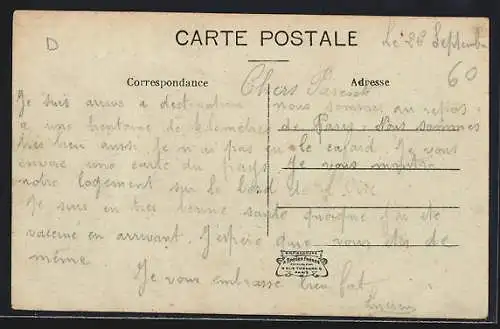 D
CARTE POSTALE
Le 28 Septembre
60
Correspondance
Adresse
Chers Parents
Je suis arrivé a destination nous sommes au repos
a une trentaine de kilomètres de Paris. Nous sommes
très bien aussi. Je n'ai pas eu le cafard. Je vous
envoie une carte du pays. Je vous montre
notre logement sur le bord de l'Oise
Je suis en très bonne santé quoique j'ai été
vacciné en arrivant. J'espère que vous êtes de
même.
Je vous embrasse bien fort
Lucien